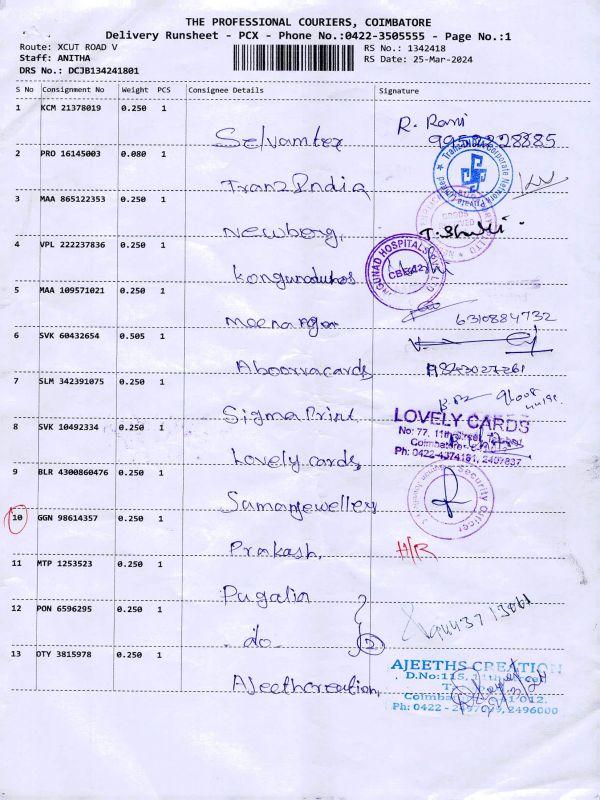 THE PROFESSIONAL COURIERS, COIMBATORE
Delivery Runsheet - PCX - Phone No.:0422-3505555 - Page No.:1
Route: XCUT ROAD V
RS No.: 1342418
Staff: ANITHA
RS Date: 25-Mar-2024
DRS No.: DCJB134241801
S No Consignment No Weight PCS Consignee Details Signature
1 KCM 21378019 0.250 1 Selvamtex R. Rani
2 PRO 16145003 0.080 1 Tranz India
3 MAA 865122353 0.250 1 Newberg
4 VPL 222237836 0.250 1 Kongunaduhos
5 MAA 109571021 0.250 1 6310884732
6 SVK 60432654 0.505 1 Aboorvacards
7 SLM 342391075 0.250 1 Sigma Print
8 SVK 10492334 0.250 1 Lovely cards
LOVELY CARDS
No: 77, 11th Street,
Coimbatore
9 BLR 4300860476 0.250 1
Security Officer
10 GGN 98614357 0.250 1 Prakash, H/R
11 MTP 1253523 0.250 1 Pugalia
12 PON 6596295 0.250 1 do 2
13 OTY 3815978 0.250 1 Ajeethcreation,
AJEETHS CREATION
D.No:115, 11th
Ph: 0422 - 2496000